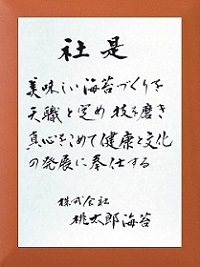 社是
美味しい海苔づくりを
天職と定め技を磨き
真心をこめて健康と文化
の発展に奉仕する
株式会社
桃太郎海苔